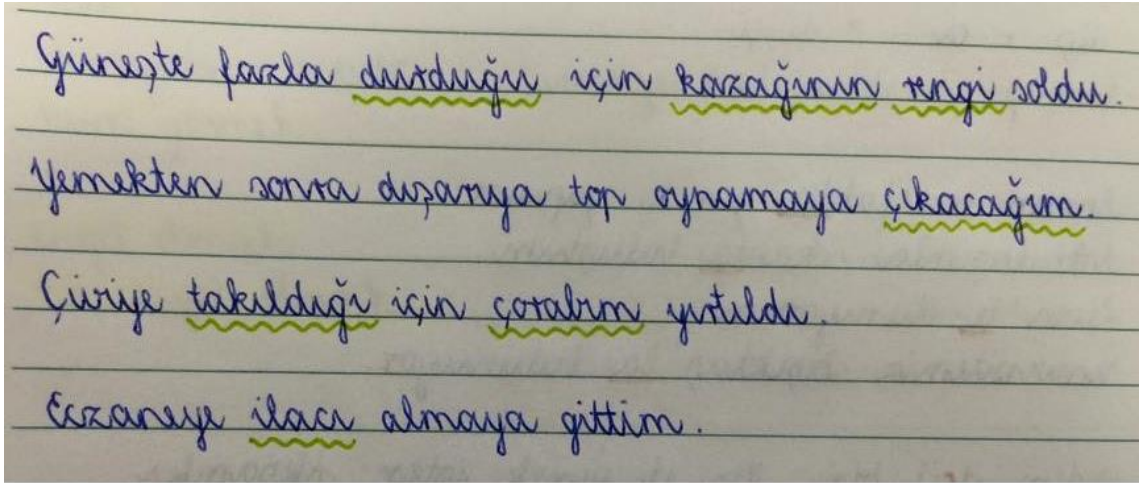 Güneşte fazla durduğu için kazağının rengi soldu.
Yemekten sonra dışarıya top oynamaya çıkacağım.
Çiviye takıldığı için çorabım yırtıldı.
Eczaneye ilacı almaya gittim.